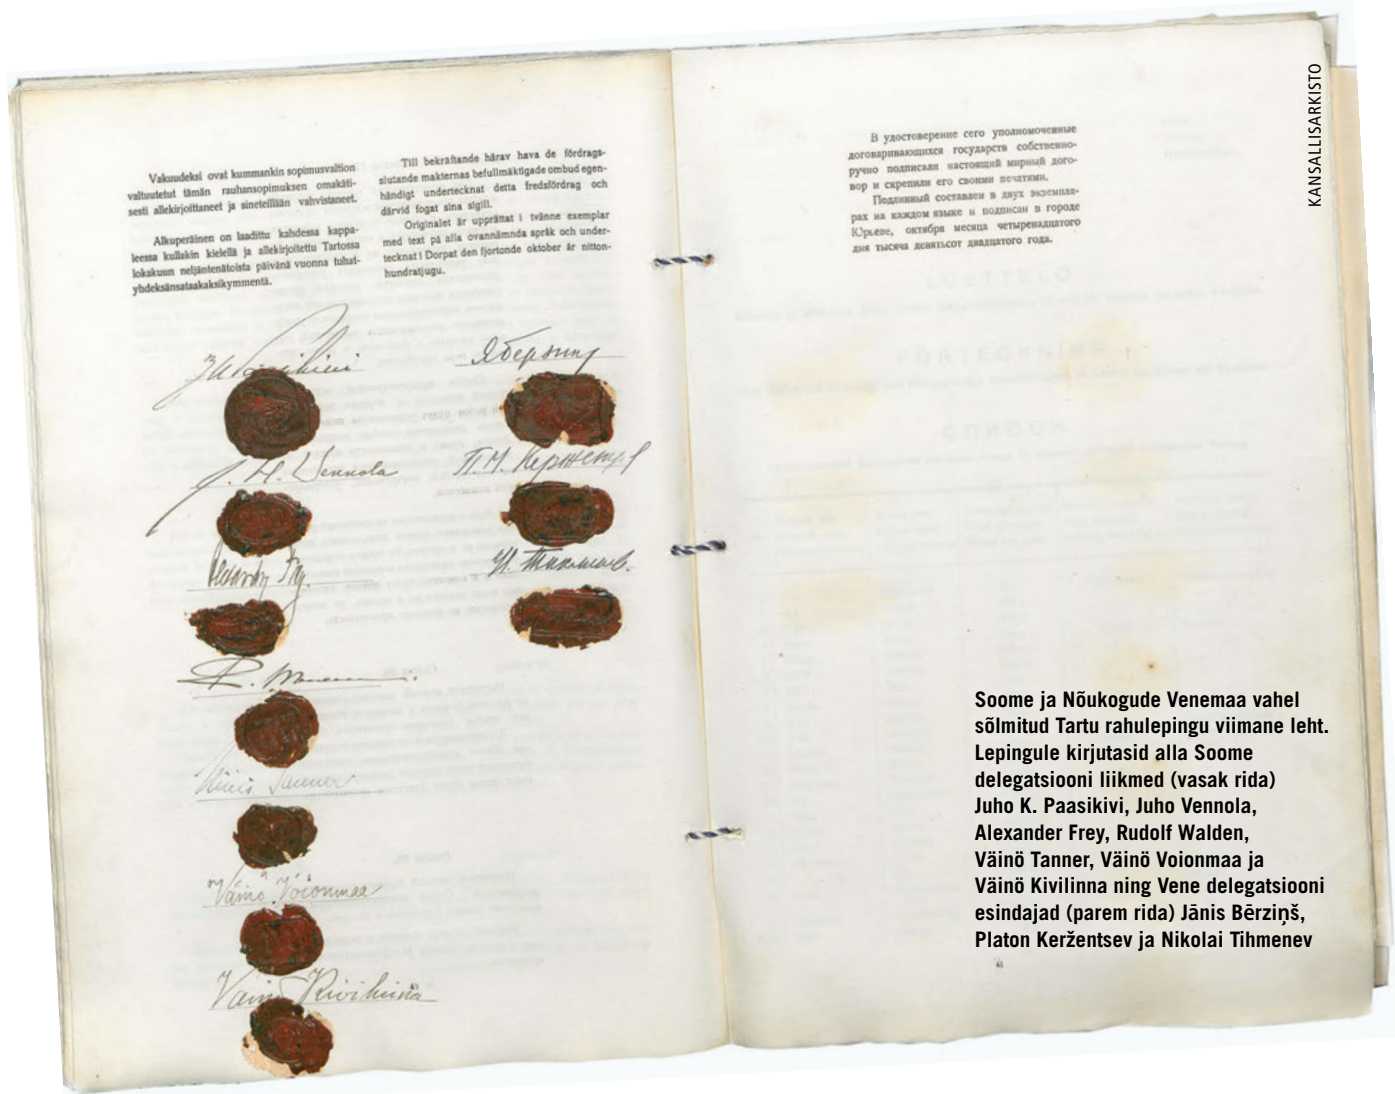 Vakuudeksi ovat kummankin sopimusvaltion
valtuutetut tämän rauhansopimuksen omakäti-
sesti allekirjoittaneet ja sineteillään vahvistaneet.
Alkuperäinen on laadittu kahdessa kappa-
leessa kullakin kielellä ja allekirjoitettu Tartossa
lokakuun neljäntenätoista päivänä vuonna tuhat-
yhdeksänsataakaksikymmentä.
Till bekräftande härav hava de fördrags-
slutande makternas befullmäktigade ombud egen-
händigt undertecknat detta fredsfördrag och
därvid fogat sina sigill.
Originalet är upprättat i tvänne exemplar
med text på alla ovannämnda språk och under-
tecknat i Dorpat den fjortonde oktober år nitton-
hundratjugu.
В удостоверение сего уполномоченные
договаривающихся государств собственно-
ручно подписали настоящий мирный дого-
вор и скрепили его своими печатями.
Подлинный составлен в двух экземпля-
рах на каждом языке и подписан в городе
Юрьеве, октября месяца четырнадцатого
дня тысяча девятьсот двадцатого года.
J. H. Vennola
Väinö Voionmaa
Väinö Kivilinna
Я Берзинь
П. М. Керженцев
KANSALLISARKISTO
Soome ja Nõukogude Venemaa vahel
sõlmitud Tartu rahulepingu viimane leht.
Lepingule kirjutasid alla Soome
delegatsiooni liikmed (vasak rida)
Juho K. Paasikivi, Juho Vennola,
Alexander Frey, Rudolf Walden,
Väinö Tanner, Väinö Voionmaa ja
Väinö Kivilinna ning Vene delegatsiooni
esindajad (parem rida) Jānis Bērziņš,
Platon Keržentsev ja Nikolai Tihmenev